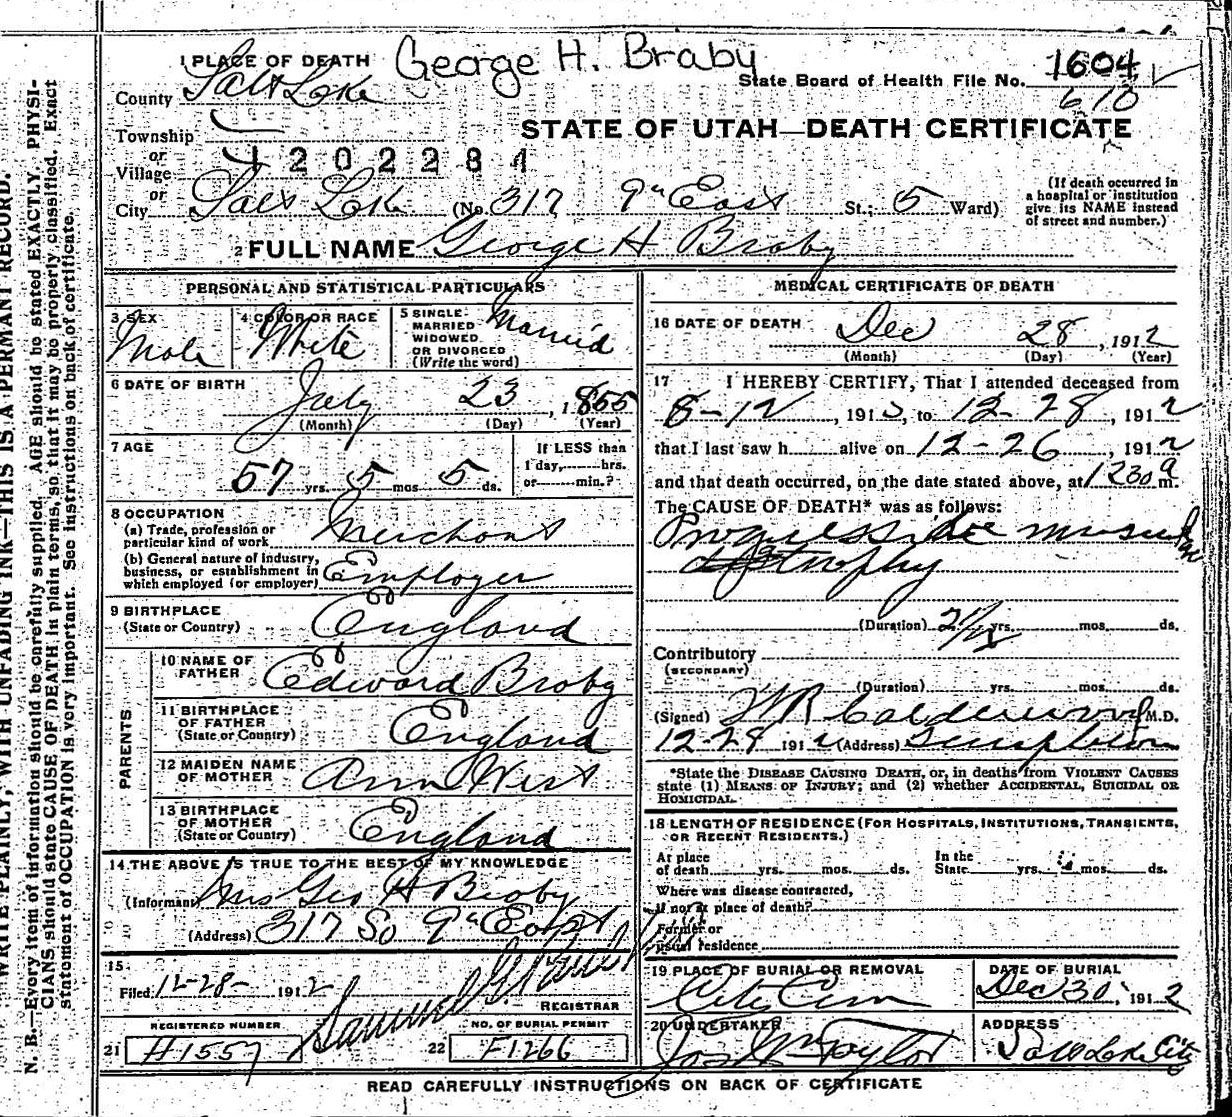 George H. Braby
1 PLACE OF DEATH
State Board of Health File No. 1604
610
County Salt Lake
STATE OF UTAH—DEATH CERTIFICATE
Township
or
Village
202284
or
City Salt Lake (No. 317 9th East St.; 5 Ward)
(If death occurred in a hospital or institution give its NAME instead of street and number.)
2 FULL NAME George H Braby
PERSONAL AND STATISTICAL PARTICULARS
3 SEX
Male
4 COLOR OR RACE
White
5 SINGLE-
MARRIED
WIDOWED
OR DIVORCED
(Write the word)
Married
6 DATE OF BIRTH
July 23, 1855
(Month) (Day) (Year)
7 AGE
57 yrs. 5 mos. 5 ds.
If LESS than
1 day,......hrs.
or......min.?
8 OCCUPATION
(a) Trade, profession or
particular kind of work Merchant
(b) General nature of industry,
business, or establishment in
which employed (or employer) Employer
9 BIRTHPLACE
(State or Country) England
PARENTS
10 NAME OF
FATHER Edward Braby
11 BIRTHPLACE
OF FATHER
(State or Country) England
12 MAIDEN NAME
OF MOTHER Ann West
13 BIRTHPLACE
OF MOTHER
(State or Country) England
14 THE ABOVE IS TRUE TO THE BEST OF MY KNOWLEDGE
(Informant) Mrs Geo H Braby
(Address) 317 So 9th East
15
Filed 12-28- 1912 Samuel G. Paul
REGISTRAR
REGISTERED NUMBER
21 H1557
NO. OF BURIAL PERMIT
22 F1266
MEDICAL CERTIFICATE OF DEATH
16 DATE OF DEATH
Dec 28, 1912
(Month) (Day) (Year)
17 I HEREBY CERTIFY, That I attended deceased from
8-12, 191, to 12-28, 1912
that I last saw h alive on 12-26, 1912
and that death occurred, on the date stated above, at 1230 a m.
The CAUSE OF DEATH* was as follows:
Progressive muscular
atrophy
(Duration) 2½ yrs. mos. ds.
Contributory
(SECONDARY)
(Duration) yrs. mos. ds.
(Signed) W R Calderwood M.D.
12-28 191 (Address) Templeton
*State the DISEASE CAUSING DEATH, or, in deaths from VIOLENT CAUSES
state (1) MEANS OF INJURY; and (2) whether ACCIDENTAL, SUICIDAL OR
HOMICIDAL.
18 LENGTH OF RESIDENCE (FOR HOSPITALS, INSTITUTIONS, TRANSIENTS,
OR RECENT RESIDENTS.)
At place
of death yrs. mos. ds.
In the
State yrs. mos. ds.
Where was disease contracted,
if not at place of death?
Former or
usual residence
19 PLACE OF BURIAL OR REMOVAL
City Cem
DATE OF BURIAL
Dec 30, 1912
20 UNDERTAKER
Jos Wm Taylor
ADDRESS
Salt Lake City
READ CAREFULLY INSTRUCTIONS ON BACK OF CERTIFICATE
WRITE PLAINLY, WITH UNFADING INK—THIS IS A PERMANT RECORD.
N. B.—Every item of information should be carefully supplied. AGE should be stated EXACTLY. PHYSI-
CIANS should state CAUSE OF DEATH in plain terms, so that it may be properly classified. Exact
statement of OCCUPATION is very important. See instructions on back of certificate.